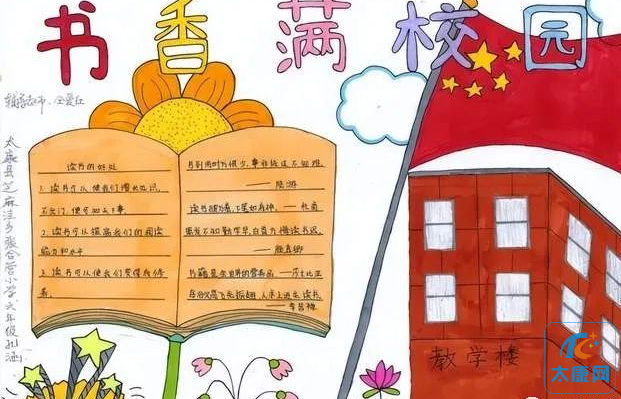 书香满校园
辅导老师
太康县芝麻洼乡张合营小学六年级孔涵
读书的好处
1. 读书可以使我们增长知识,
不出门,便可知天下事
2. 读书可以提高我们的阅读
能力和水平
3. 读书可以使我们变得有修
养。
书到用时方恨少,事非经过不知难。
——陆游
读书破万卷,下笔如有神。——杜甫
黑发不知勤学早,白首方悔读书迟。
——颜真卿
书籍是全世界的营养品——莎士比亚
鸟欲高飞先振翅,人求上进先读书
——李苦禅
教学楼
太原网